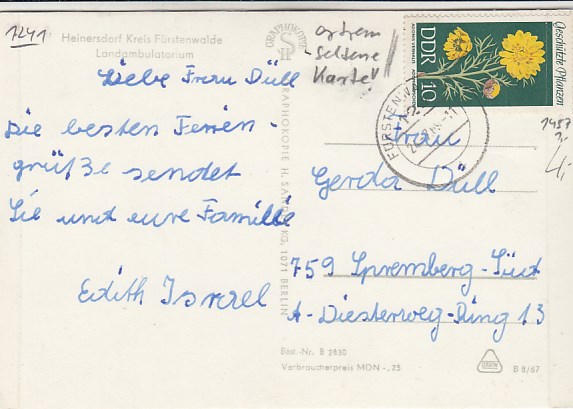 1241.
Heinersdorf Kreis Fürstenwalde
Landambulatorium
Liebe Frau Düll
die besten Ferien-
grüße sendet
Sie und eure Familie
Edith Israel
GRAPHOKOPIE
GRAPHOKOPIE H. SANDER KG, 1071 BERLIN
extrem
seltene
Karte!
Geschützte Pflanzen
DDR
10
FÜRSTENW
1457
4,-
Frau
Gerda Düll
759 Spremberg-Süd
A-Diesterweg-Ring 13
Best.-Nr. B 2830
Verbraucherpreis MDN -,25
B 8/67